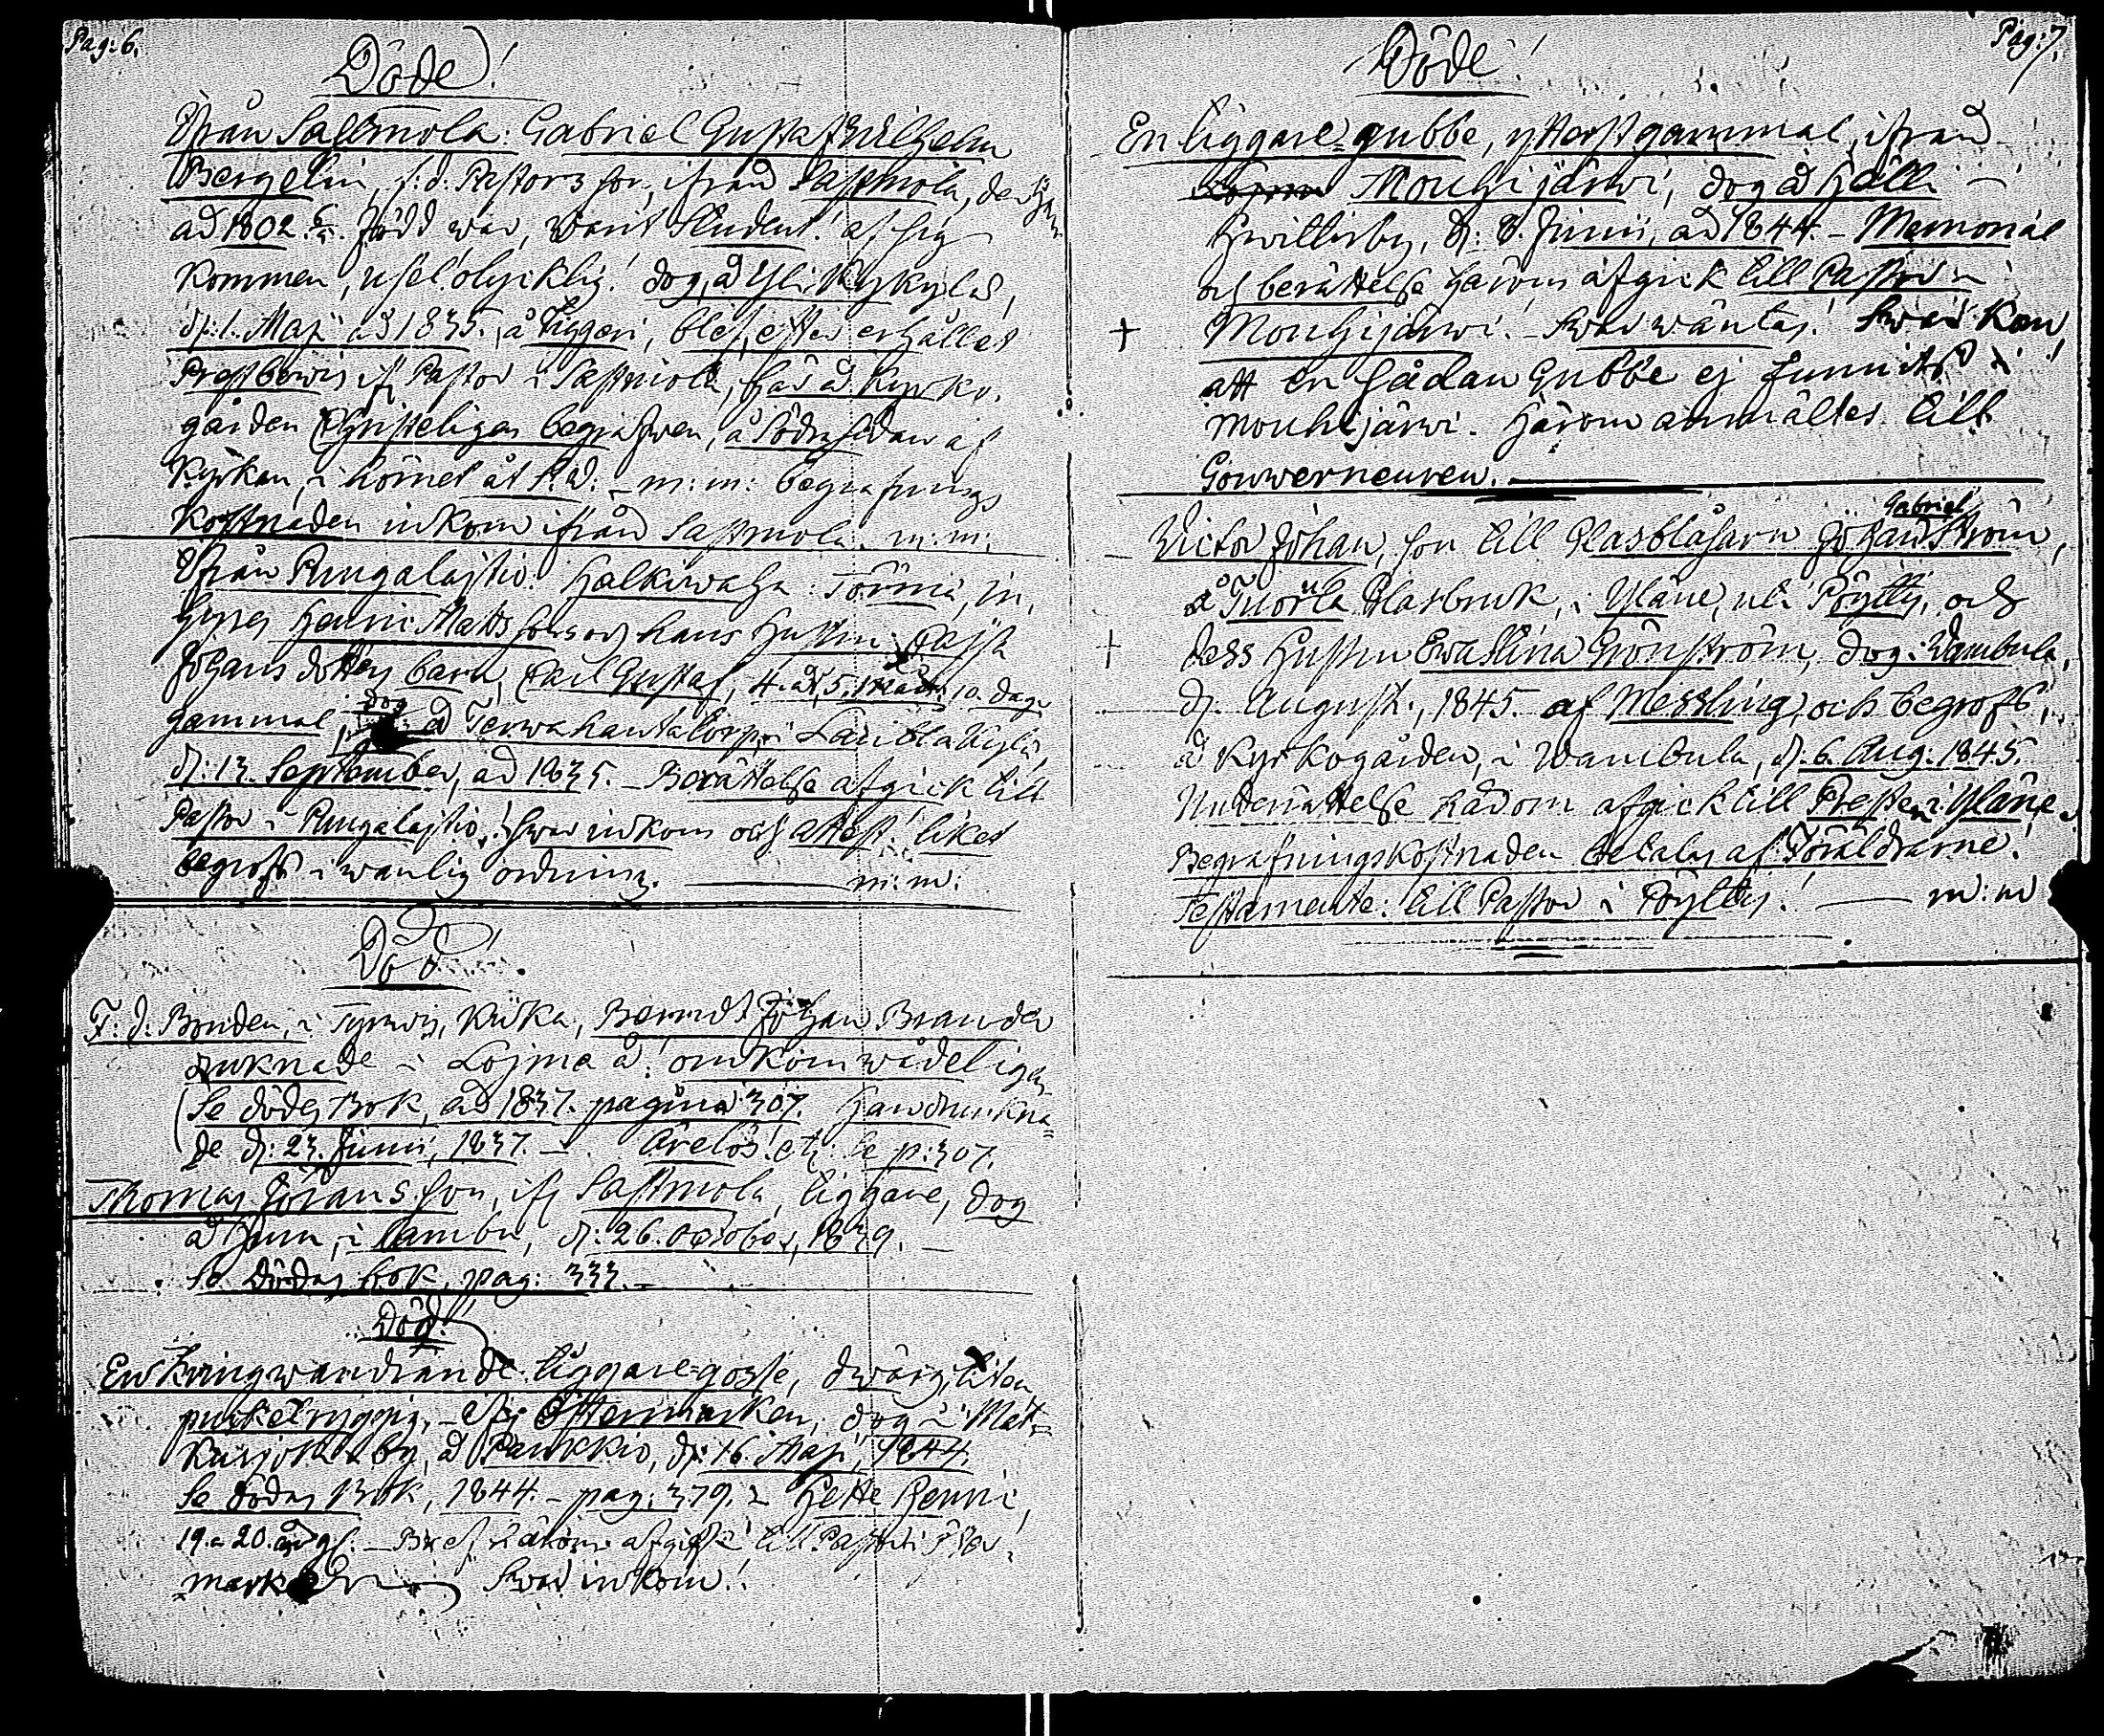 Pag: 6.
Döde!
Ifrån Sastmola: Gabriel Gustaf Wilhelm
Bergelin, f. d. Pastors son, ifrån Sastmola, der han
år 1802 6/5. född war, warit Student. af sig
kommen, usel, olycklig! dog, å Yli Kykylä,
d: 1. Maji år 1835. å Tiggeri, blef, efter erhållet
Prestbewis ifr Pastor i Sastmola, här å Kyrko-
gården Christeligen begrafwen, å Södra sidan af
Kyrkan, i hörnet åt S. W: m: m: begrafnings
kostnaden inkom ifrån Sastmola. m: m:
Ifrån Pungalajtio. Halkiwaha: Törmä, in-
hyses Henric Matts sons och hans hustru Cajsa
Johans dotters barn, Carl Gustaf, 4. år, 5. månr 10. dagr
gammal, dog å Terwahauta torp, i Lauttakylä,
d: 13. September, år 1835. Berättelse afgick till
Pastor i Pungalajtio, swar inkom och attest, liket
begrofs i wanlig ordning. m: m:
Död!
F: d. Bonden, i Tyrwis, Kiika, Berndt Johan Brander
druknade i Lojma å! omkom wådeligen
(Se Dödes Bok, år 1837. pagina 307. Han drunkna-
de d: 23. Junii, 1837. Ärelös! etc: Se p: 307.
Thomas Jörans son, ifr Sastmola, tiggare, dog
å Hjun, i Sambu, d: 26. October, 1839.
Se Dödas bok, pag: 333.
Död!
En kringwandrande tiggare-gosse, dwärg, liten,
puckelryggig, ifr Östermarken, dog i Mat-
kusjoki by, å Paukkio, d: 16. Maji, 1844.
Se dödas Bok, 1844. pag: 379. Hette Henric,
19. a 20. år gl. Bref härom afgick till Pastor i Öster-
mark Swar inkom!
Pag: 7.
Döde!
En tiggare-gubbe, ytterst gammal, ifrån
Mouhijärwi, dog å Hälli
Hwittisby, d: 8. Junii, år 1844. Memorial
och berättelse härom afgick till Pastor i
+ Mouhijärwi. Swar wäntas! Swar kom
att en sådan Gubbe ej funnits i
mouhijärwi. Härom anmältes till
Gouverneuren.
Gabriel
Victor Johan, son till Glasblåsarn Johan Ström,
å Tuorla Glasbruk, i Yläne, uti Pöytis, och
+ dess hustru Ewa Stina Grönström, dog i Wambula,
d. August., 1845. af Messling, och begrofs,
å kyrkogården, i Wambula, d. 6. Aug: 1845.
Underrättelse härom afgick till Presten i Yläne.
Begrafningskostnaden betalas af Föräldrarne!
Testamente: till Pastor i Pöytis! m: m